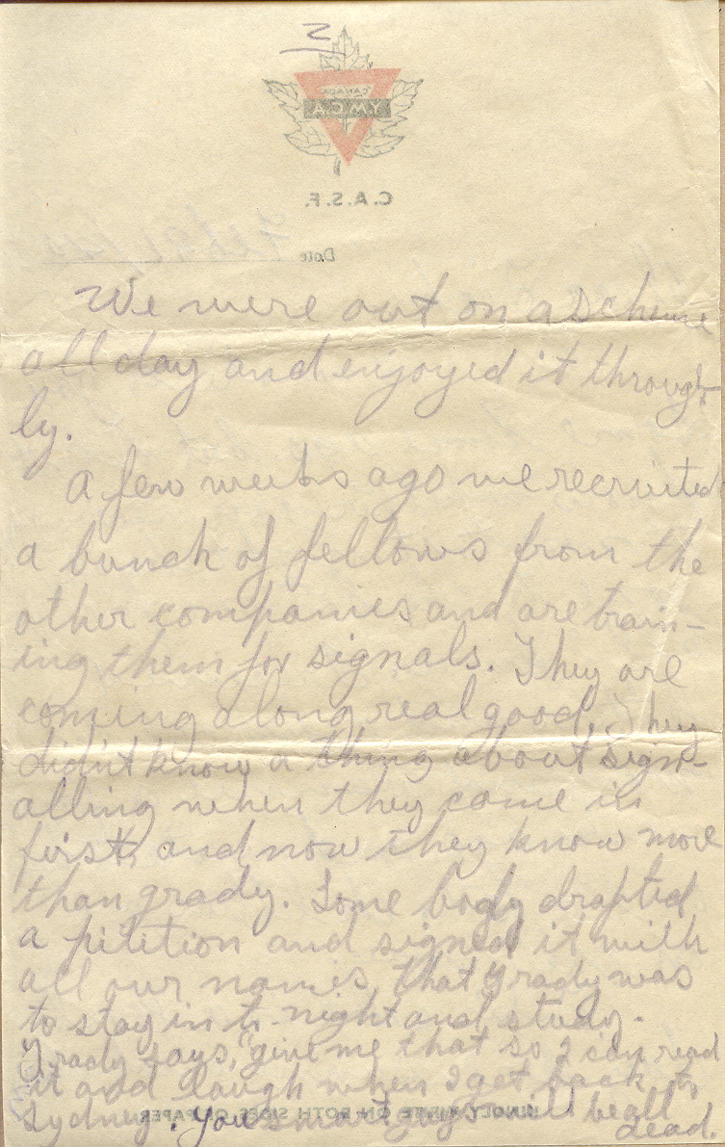 2
CANADA
Y.M.C.A
C.A.S.F.
Date
We were out on a scheme
all day and enjoyed it through-
ly.
A few weeks ago we recruited
a bunch of fellows from the
other companies and are train-
ing them for signals. They are
coming along real good. They
didn't know a thing about sign-
alling when they come in
first, and now they know more
than grady. Some body drafted
a pitition and signed it with
all our names, that Grady was
to stay in to-night and study.
Grady says, "give me that so I can read
it and laugh when I get back to
Sydney. You smart guys will be all
dead.
KINDLY WRITE ON BOTH SIDES OF PAPER